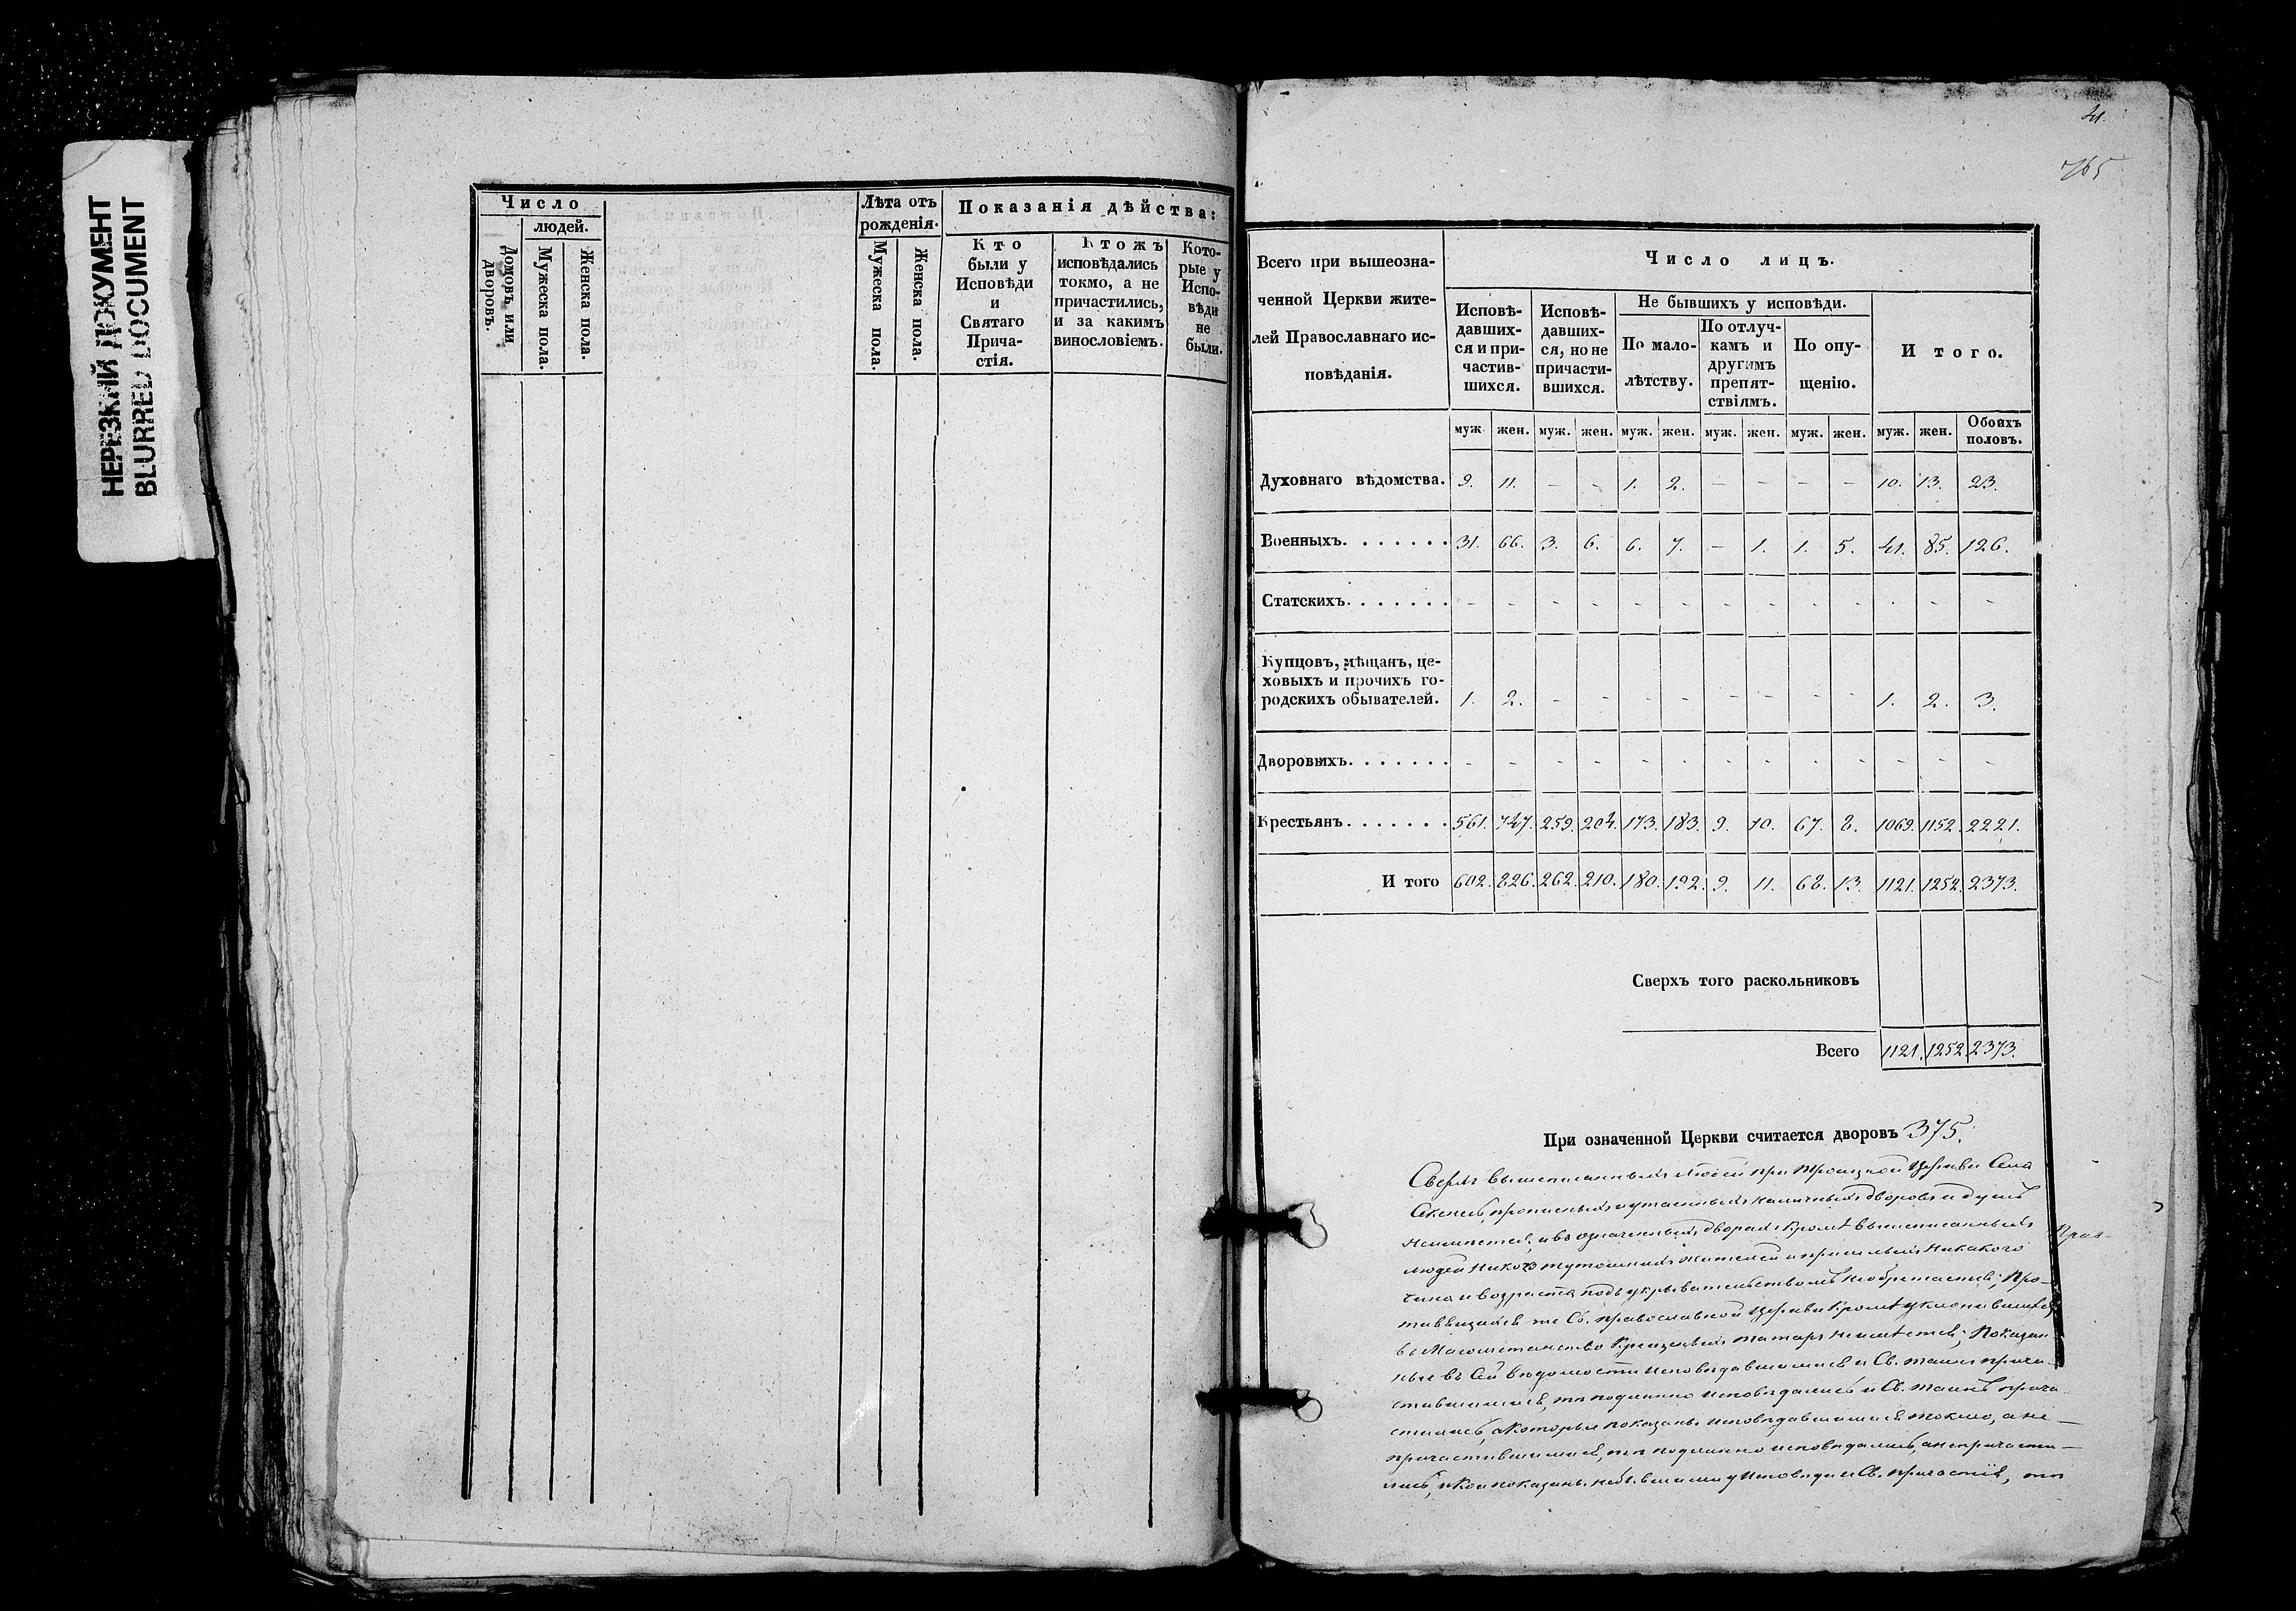 НЕРЕЗКИЙ ДОКУМЕНТ
BLURRED DOCUMENT
Число
людей.
Домовъ или дворовъ.
Мужеска пола.
Женска пола.
Лѣта отъ рожденія.
Мужеска пола.
Женска пола.
Показанія дѣйства:
Кто были у Исповѣди и Святаго Прича- стія.
Ктожъ исповѣдались токмо, а не причастились, и за какимъ винословіемъ.
Кото- рые у Испо- вѣди не были.
41.
765
Всего при вышеозна-
ченной Церкви жите-
лей Православнаго ис-
повѣданія.
Число лицъ.
Исповѣ- давших- ся и при- частив- шихся.
Исповѣ- давших- ся, но не причасти- вшихся.
Не бывшихъ у исповѣди.
По мало- лѣтству.
По отлуч- камъ и другимъ препят- ствіямъ.
По опу- щенію.
И того.
муж. жен. муж. жен. муж. жен. муж. жен. муж. жен. муж. жен. Обоихъ половъ.
Духовнаго вѣдомства. 9. 11. – – 1. 2. – – – – 10. 13. 23.
Военныхъ. . . . . . . 31. 66. 3. 6. 6. 7. – 1. 1. 5. 41. 85. 126.
Статскихъ. . . . . . . - - - - - - - - - - - - -
Купцовъ, мѣщанъ, це-
ховыхъ и прочихъ го-
родскихъ обывателей. 1. 2. - - - - - - - - 1. 2. 3.
Дворовыхъ. . . . . . . - - - - - - - - - - - - -
Крестьянъ. . . . . . . 561. 747. 259. 204. 173. 183. 9. 10. 67. 8. 1069. 1152. 2221.
И того 602. 826. 262. 210. 180. 192. 9. 11. 68. 13. 1121. 1252. 2373.
Сверхъ того раскольниковъ
Всего 1121. 1252. 2373.
При означенной Церкви считается дворовъ 375.
Сверхъ вышеписанныхъ людей при Троицкой Церкви Села
прописныхъ и утаенныхъ наличныхъ дворовъ и душъ
неимѣется, и въ означенныхъ дворахъ кромѣ вышеписанныхъ
людей никого тутошнихъ жителей и пришлыхъ никакого
чина и возраста подъ укрывательствомъ необретается; Про-
тивящихся же Св. православной Церкви кромѣ уклонившихся
въ Магометанство Крещеныхъ татаръ неимѣется; Показан-
ные въ сей вѣдомости исповѣдавшимися и Св. таинъ прича-
стившимися, тѣ подлинно исповѣдались и Св. таинъ прича-
стились, а которые показаны исповѣдавшимися токмо, а не-
причастившимися, тѣ подлинно исповѣдались, а непричасти-
лись, и кои показаны небывшими у Исповѣди и Св. причастія, тѣ